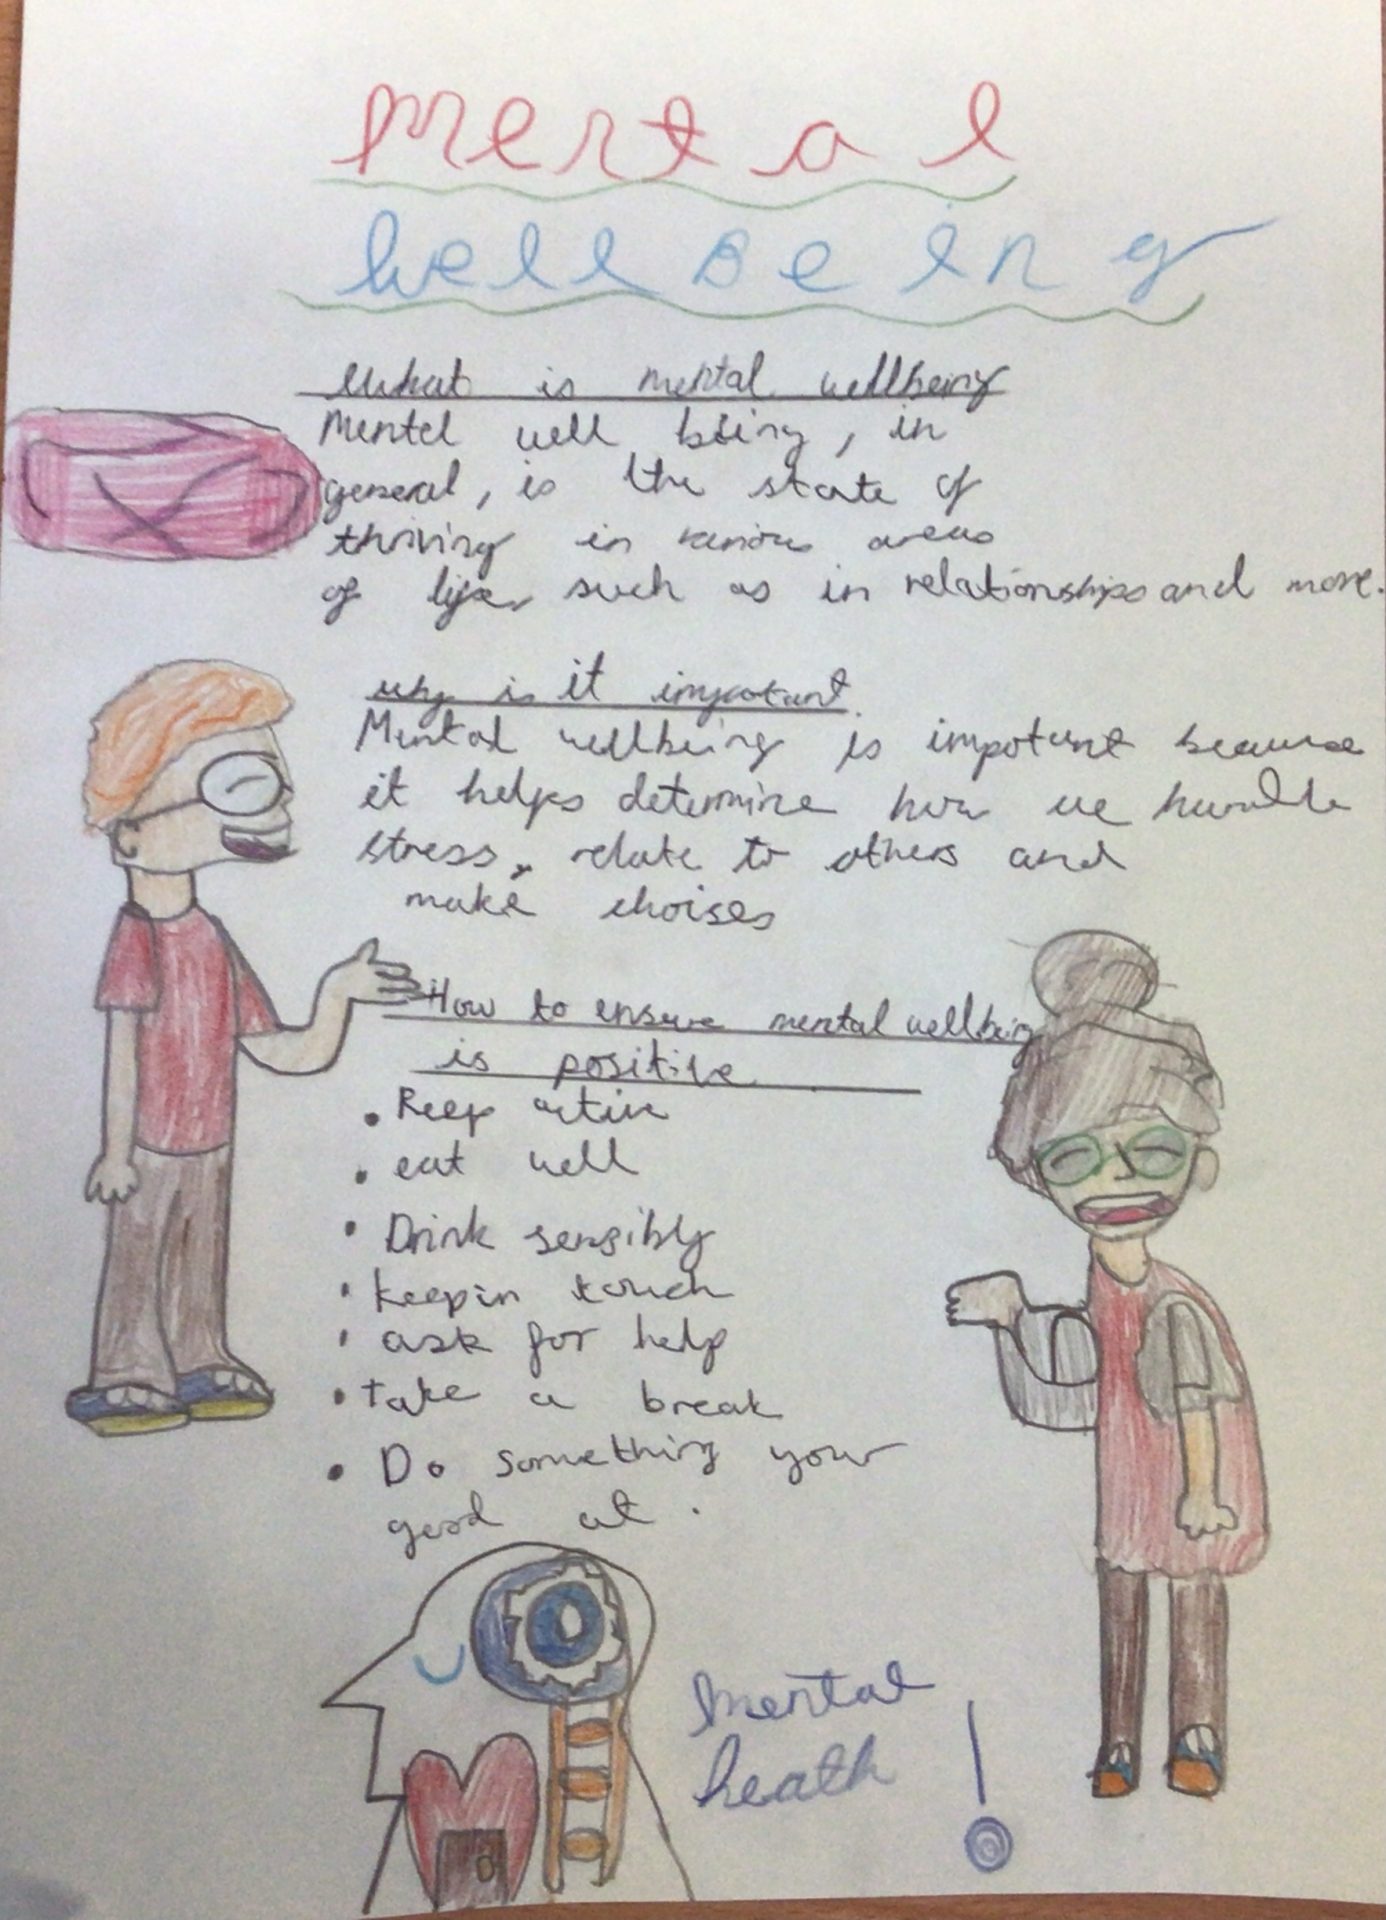 Mental
WellBeing
What is mental wellbeing
Mentel well being, in
general, is the state of
thriving in various areas
of life, such as in relationships and more.
why is it important
Mental wellbeing is impotant because
it helps determine how we handle
stress, relate to others and
make choises
How to ensure mental wellbeing
is positive
• Keep active
• eat well
• Drink sensibly
• keep in touch
• ask for help
• take a break
• Do something your
good at.
Mental
heath !